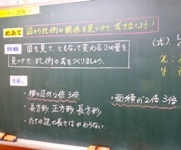 めあて
図から比例の関係を見つけて式で表そう!
問題
図を見て、ともなって変わる2つの量を
見つけて、比例の式をつくりましょう。
見通し
・横の辺が2倍3倍
・面積が2倍3倍
・長方形 正方形 長方形
・たての辺の長さはかわらない
(式)